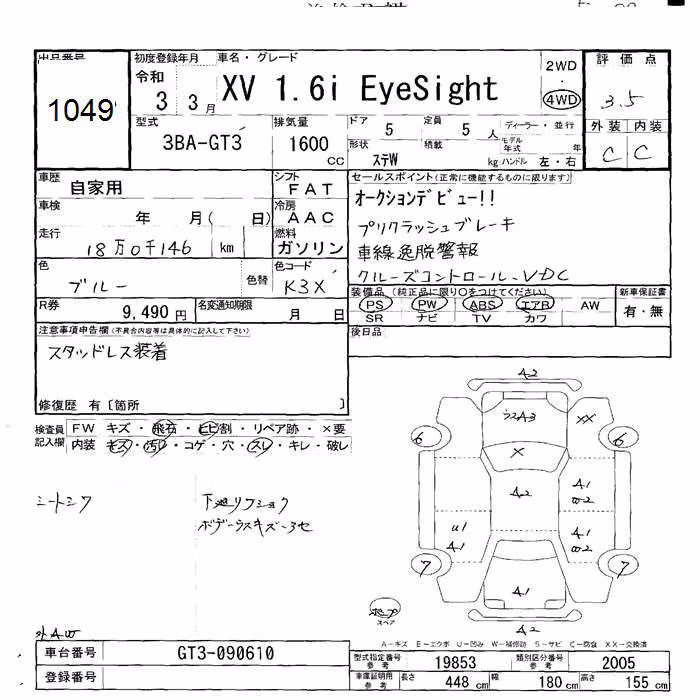 出品番号
1049
初度登録年月
令和
3 3月
車名・グレード
XV 1.6i EyeSight
2WD
・
4WD
評価点
3.5
外装 内装
C C
型式
3BA-GT3
排気量
1600
CC
ドア
5
定員
5 人
ディーラー・並行
形状
ステW
積載
kg
モデル年式
年
ハンドル 左・右
車歴
自家用
シフト
FAT
車検
年 月( 日)
冷房
AAC
走行
18万0千146 km
燃料
ガソリン
色
ブルー
色替
色コード
K3X
R券
9,490円
名変通知期限
月 日
セールスポイント(正常に機能するものに限ります)
オークションデビュー!!
プリクラッシュブレーキ
車線逸脱警報
クルーズコントロール、VDC
装備品(純正品に限り○をつけてください)
PS PW ABS エアB AW
SR ナビ TV カワ
新車保証書
有・無
後日品
注意事項申告欄(不具合内容等は具体的に記入して下さい)
スタッドレス装着
修復歴 有〔箇所 〕
検査員記入欄
FW キズ・飛石・ヒビ割・リペア跡・×要
内装 キズ・汚れ・コゲ・穴・スレ・キレ・破レ
シートシワ
下廻リフショク
ボデーラスキズ-3セ
外AW
A2
A3
XX
6
6
X
A2
A1
W2
U1
A1
A1
W2
7
7
A1
A2
スペア
A-キズ E-エクボ U-凹み W-補修跡 S-サビ C-腐食 XX-交換済
車台番号
GT3-090610
登録番号
型式指定番号
参考
19853
類別区分番号
参考
2005
車庫証明用
参考
長さ
448 cm
幅
180 cm
高さ
155 cm